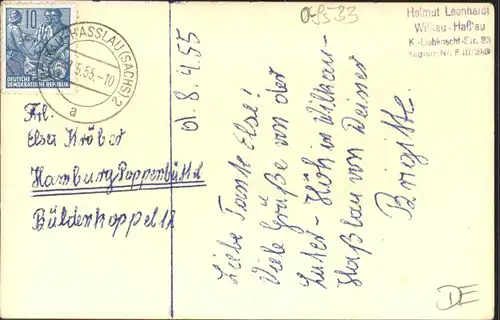 10
DEUTSCHE
DEMOKRATISCHE REPUBLIK
HASSLAU (SACHS) 2
5.55.-10
a
Helmut Leonhardt
Wilkau-Haßlau
K.-Liebknecht-Str. 83
Frl.
Elsa Kröber
Hamburg Poppenbüttel
Büldenkoppel 12
d. 8.4.55
Liebe Tante Else!
Viele Grüße von der
Luther-Höh in Wilkau-
Haßlau von Deiner
Brigitte.
DE